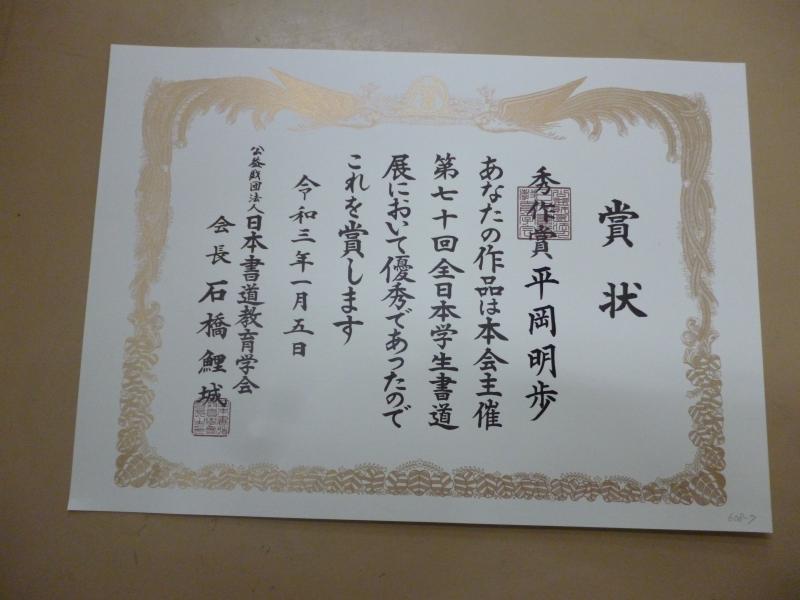 賞状
秀作賞 平岡明歩
あなたの作品は本会主催
第七十回全日本学生書道
展において優秀であったので
これを賞します
令和三年一月五日
公益財団法人日本書道教育学会
会長 石橋鯉城
608-7